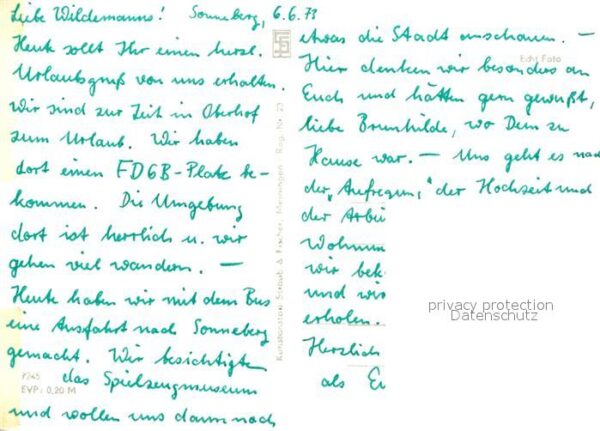 Liebe Wildemanns! Sonneberg, 6.6.73
Heute sollt Ihr einen herzl.
Urlaubsgruß von uns erhalten.
Wir sind zur Zeit in Oberhof
zum Urlaub. Wir haben
dort einen FDGB-Platz be-
kommen. Die Umgebung
dort ist herrlich u. wir
gehen viel wandern. —
Heute haben wir mit dem Bus
eine Ausfahrt nach Sonneberg
gemacht. Wir besichtigten
das Spielzeugmuseum
und wollen uns dann noch
7245
EVP: 0,20 M
Straub & Fischer, Meiningen
Echt Foto
etwas die Stadt anschauen. —
Hier denken wir besonders an
Euch und hätten gern gewußt,
liebe Brunhilde, wo Dein zu
Hause war. — Uns geht es nach
der „Aufregung" der Hochzeit und
der Arbei
Wohnun
wir bek
und wir
erholen.
Herzlich
als Eu
privacy protection
Datenschutz